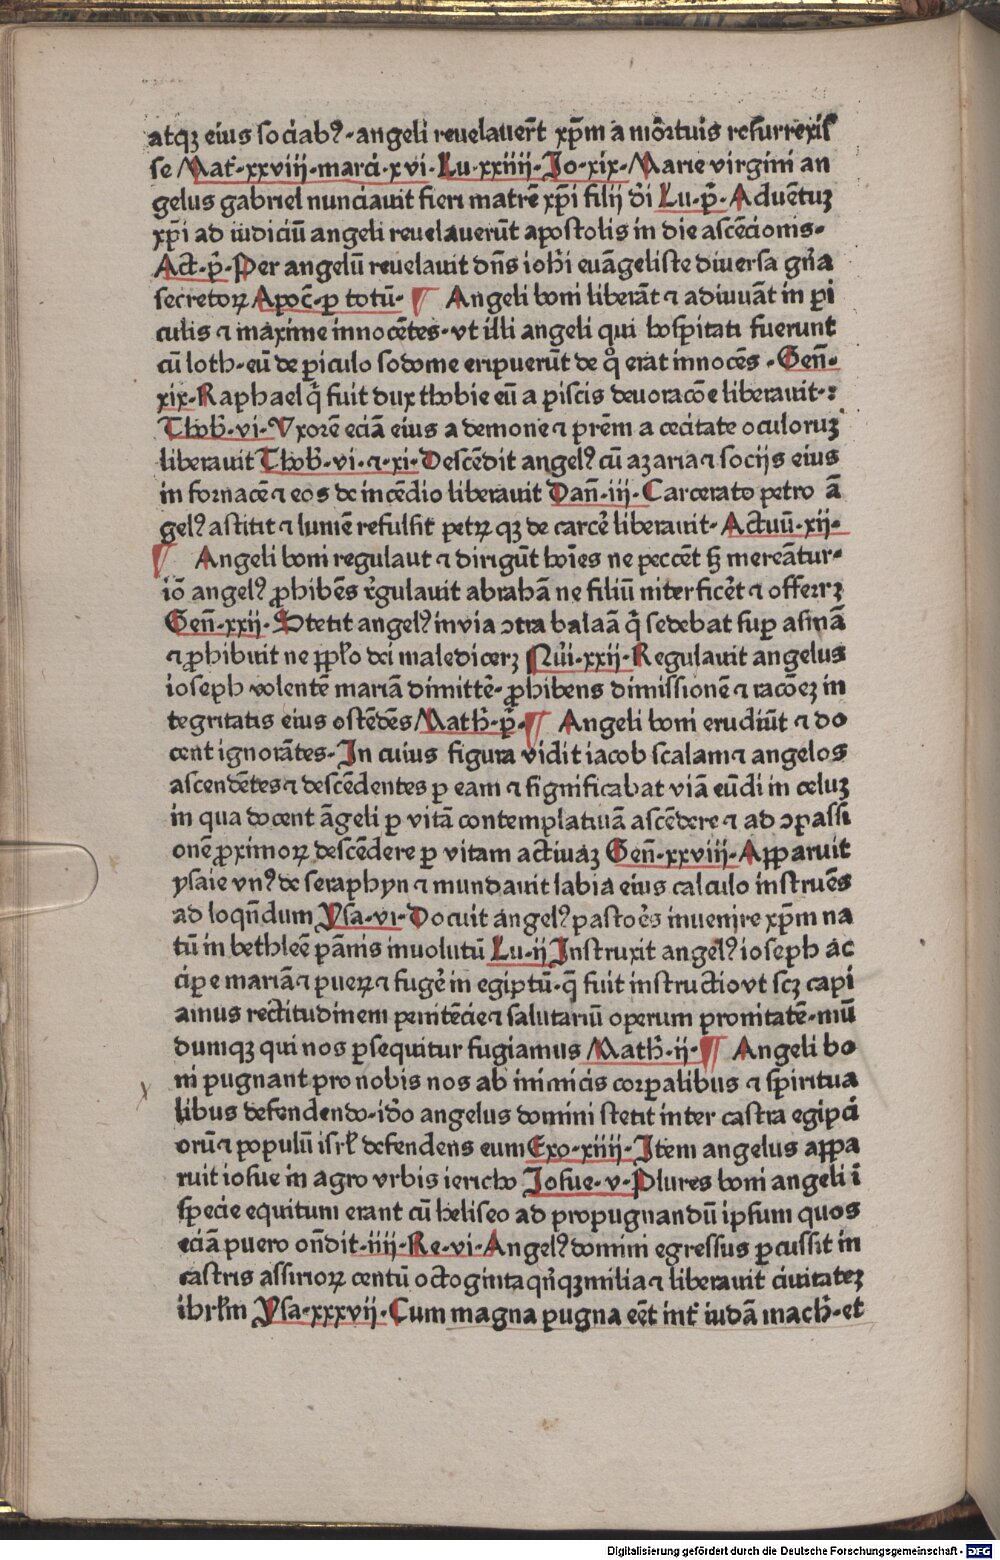 atqꝫ eius sociabꝰ·angeli reuelauer̄t xp̄m a mortuis resurrexis
se Mat̄·xxviij·marci·xvi·Lu·xxiiij·Jo·xix·Marie virgini an
gelus gabriel nunciauit fieri matrē xp̄i filij dei Lu·p̄·Aduētuꝫ
xp̄i ad iudiciū angeli reuelauerūt apostolis in die ascēcionis·
Act·p̄·Per angelū reuelauit dn̄s ioh̄i euāgeliste diuersa gn̄a
secretoꝝ Apoc̄·ꝑ totū· ¶ Angeli boni liberāt ⁊ adiuuāt in pi
culis ⁊ maxime innocētes·vt illi angeli qui hospitati fuerunt
cū loth·eū de ꝑiculo sodome eripuerūt de qͦ erat innocēs·Gen̄·
xix·Raphael q̄ fuit dux thobie eū a piscis deuoracōe liberauit·:
Thob̄·vi·Vxorē eciā eius a demone ⁊ prēm a cecitate oculoruꝫ
liberauit Thob̄·vi·⁊·xi·Descēdit angelꝰ cū azaria ⁊ socijs eius
in fornacē ⁊ eos de incēdio liberauit Dan̄·iij·Carcerato petro ā
gelꝰ astitit ⁊ lumē refulsit petꝝ qꝫ de carcē liberauit·Actuū·xij·
¶ Angeli boni regulaut ⁊ dirigūt hoīes ne peccēt sꝫ mereātur·
iō angelꝰ ꝓhibēs r̄gulauit abrahā ne filiū interficēt ⁊ offerrꝫ
Gen̄·xxij·Stetit angelꝰ in via ↄtra balaā q̄ sedebat suꝑ asinā
⁊ ꝓhibuit ne pp̄lo dei malediceꝫ Nūi·xxij·Regulauit angelus
ioseph volentē mariā dimittē·ꝓhibens dimissionē ⁊ racōeꝫ in
tegritatis eius ostēdēs Math̄·p̄·¶ Angeli boni erudiūt ⁊ do
cent ignorātes·In cuius figura vidit iacob scalam ⁊ angelos
ascendētes ⁊ descēdentes ꝑ eam ⁊ significabat viā eūdi in celuꝫ
in qua docent āgeli ꝑ vitā contemplatiuā ascēdere ⁊ ad ↄpassi
onē ꝓximoꝝ descēdere ꝑ vitam actiuaꝫ Gen̄·xxviij·Apparuit
ysaie vnꝰ de seraphyn ⁊ mundauit labia eius calculo instruēs
ad loqn̄dum Ysa·vi·Docuit angelꝰ pastoēs inuenire xp̄m na
tū in bethleē pānis inuolutū Lu·ij Instruxit angelꝰ ioseph ac
cipe mariā ⁊ pueꝝ ⁊ fugē in egiptū·q̄ fuit instructio vt scꝫ capi
amus rectitudinem penitēcie ⁊ salutariū operum pronitatē·mū
dumqꝫ qui nos ꝑsequitur fugiamus Math̄·ij·¶ Angeli bo
ni pugnant pro nobis nos ab inimicis corꝑalibus ⁊ spiritua
libus defendendo·idō angelus domini stetit inter castra egipci
orū ⁊ populū isrl̄ defendens eum Exo·xiiij·Item angelus appa
ruit iosue in agro vrbis iericho Josue·v·Plures boni angeli ī
specie equitum erant cū heliseo ad propugnandū ipsum quos
eciā puero on̄dit·iiij·Re·vi·Angelꝰ domini egressus ꝑcussit in
castris assirioꝝ centū octoginta qn̄qꝫ milia ⁊ liberauit ciuitateꝫ
ihrl̄m Ysa·xxxvij·Cum magna pugna eēt int̄ iudā mach̄·et
Digitalisierung gefördert durch die Deutsche Forschungsgemeinschaft - DFG